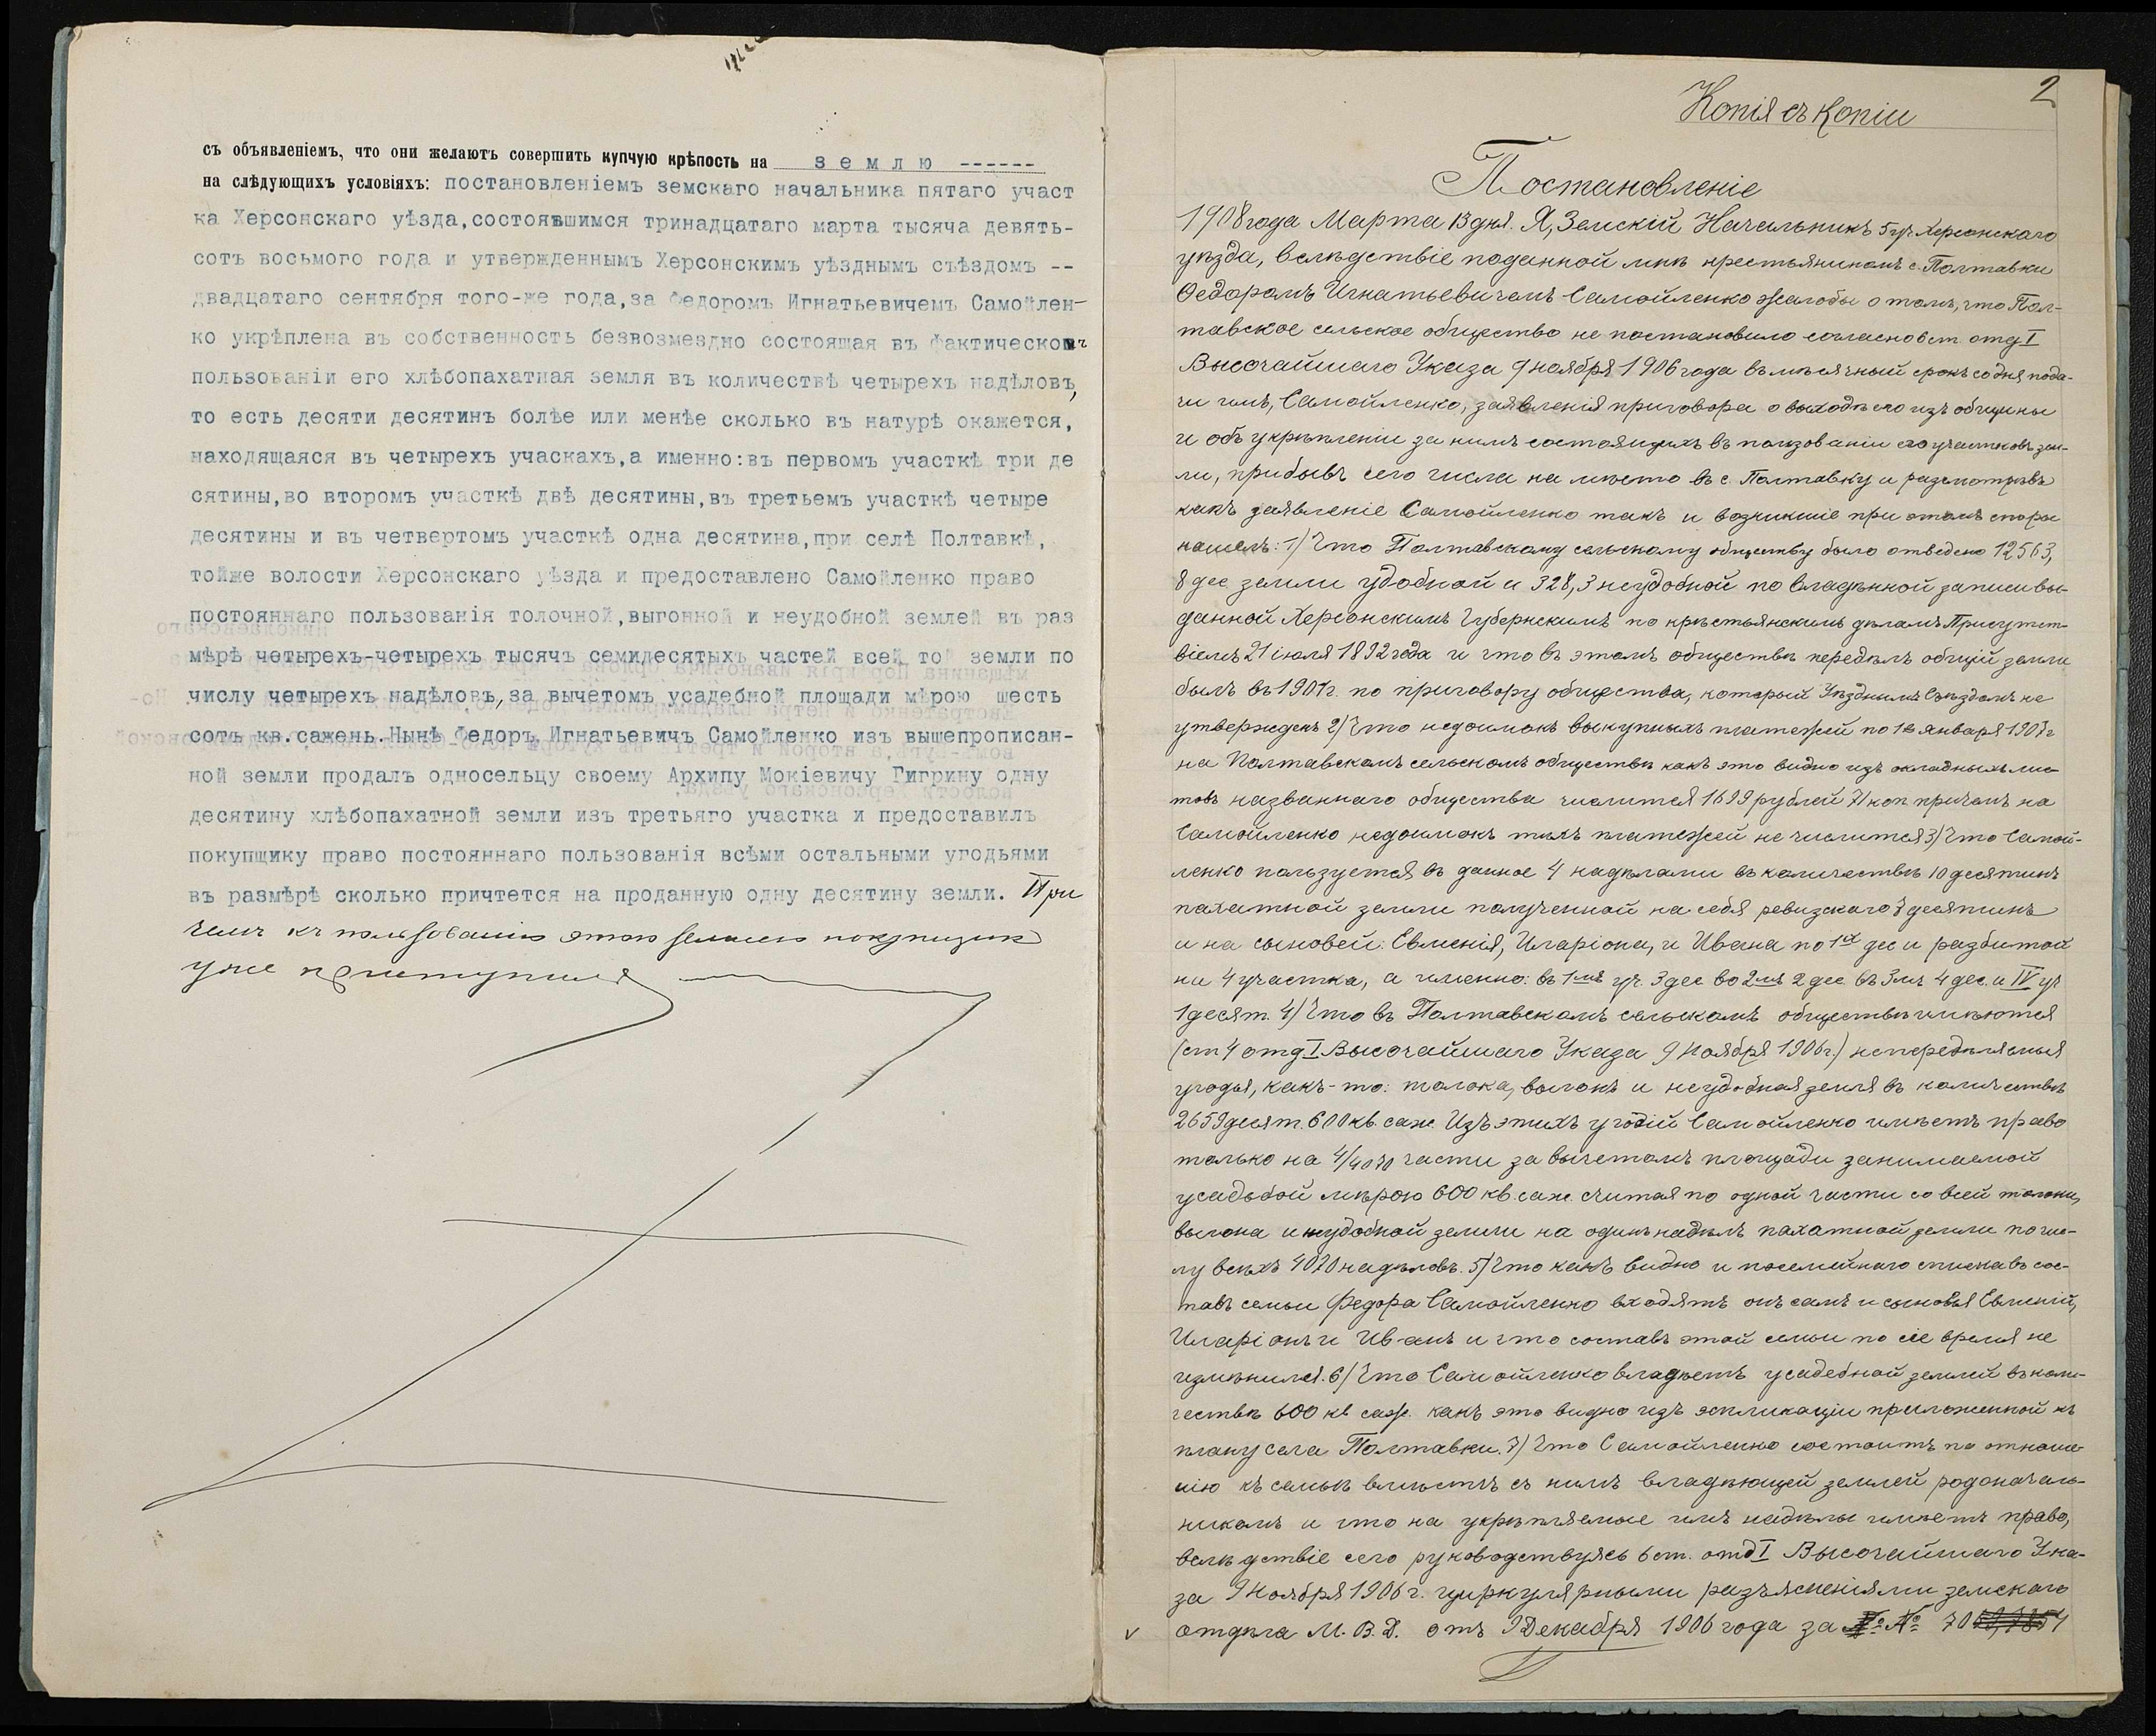 съ объявленіемъ, что они желаютъ совершить купчую крѣпость на землю ------
на слѣдующихъ условіяхъ: постановленіемъ земскаго начальника пятаго участ
ка Херсонскаго уѣзда,состоявшимся тринадцатаго марта тысяча девять-
сотъ восьмого года и утвержденнымъ Херсонскимъ уѣзднымъ съѣздомъ --
двадцатаго сентября того-же года,за Федоромъ Игнатьевичемъ Самойлен-
ко укрѣплена въ собственность безвозмездно состоящая въ фактическомъ
пользованіи его хлѣбопахатная земля въ количествѣ четырехъ надѣловъ,
то есть десяти десятинъ болѣе или менѣе сколько въ натурѣ окажется,
находящаяся въ четырехъ учаскахъ,а именно:въ первомъ участкѣ три де
сятины,во второмъ участкѣ двѣ десятины,въ третьемъ участкѣ четыре
десятины и въ четвертомъ участкѣ одна десятина,при селѣ Полтавкѣ,
тойже волости Херсонскаго уѣзда и предоставлено Самойленко право
постояннаго пользованія толочной,выгонной и неудобной землей въ раз
мѣрѣ четырехъ-четырехъ тысячъ семидесятыхъ частей всей то земли по
числу четырехъ надѣловъ,за вычетомъ усадебной площади мѣрою шесть
сотъ кв.сажень.Нынѣ Федоръ Игнатьевичъ Самойленко изъ вышепрописан-
ной земли продалъ односельцу своему Архипу Мокіевичу Гигрину одну
десятину хлѣбопахатной земли изъ третьяго участка и предоставилъ
покупщику право постояннаго пользованія всѣми остальными угодьями
въ размѣрѣ сколько причтется на проданную одну десятину земли. При
чемъ къ пользованію этою землею покупщикъ
уже приступилъ
2
Копія съ Копіи
Постановленіе
1908 года Марта 13 дня. Я, Земскій Начальникъ 5 уч. Херсонскаго
уѣзда, вслѣдствіе поданной мнѣ крестьяниномъ с. Полтавки
Ѳедоромъ Игнатьевичемъ Самойленко жалобы о томъ, что Пол-
тавское сельское общество не постановило согласно 6 ст. отд I
Высочайшаго Указа 9 ноября 1906 года въ мѣсячный срокъ со дня пода-
чи имъ, Самойленко, заявленія приговора о выходѣ его изъ общины
и объ укрѣпленіи за нимъ состоящихъ въ пользованіи его участковъ зем-
ли, прибывъ сего числа на мѣсто въ с. Полтавку и разсмотрѣвъ
какъ заявленіе Самойленко такъ и возникшіе при этомъ споры
нашелъ: 1) Что Полтавскому сельскому обществу было отведено 12563,
8 дес земли удобной и 328,3 неудобной по владѣнной записи вы-
данной Херсонскимъ Губернскимъ по крѣстьянскимъ дѣламъ Присутст-
віемъ 21 іюля 1892 года и что въ этомъ обществѣ передѣлъ общій земли
былъ въ 1907г. по приговору общества, который Уѣзднымъ Съѣздомъ не
утвержденъ 2) Что недоимокъ выкупныхъ платежей по 1е января 1907г
на Полтавскомъ сельскомъ обществѣ какъ это видно изъ окладныхъ лис-
товъ названнаго общества числится 1699 рублей 71 коп причемъ на
Самойленко недоимокъ тѣхъ платежей не числится 3) Что Самой-
ленко пользуется въ данное 4 надѣлами въ количествѣ 10 десятинъ
пахатной земли полученной на себя ревизскаго 7 десятинъ
и на сыновей: Евменія, Иларіона, и Ивана по 1ой дес и разбитой
на 4 участка, а именно: въ 1мъ уч. 3 дес во 2мъ 2 дес въ 3мъ 4 дес. и IV уч
1 десят. 4) Что въ Полтавскомъ сельскомъ обществѣ имѣются
(ст 4 отд I Высочайшаго Указа 9 Ноября 1906г.) непередѣляемыя
угодья, какъ-то: толока, выгонъ и неудобная земля въ количествѣ
2659 десят. 600 кв. саж. Изъ этихъ угодій Самойленко имѣетъ право
только на 4/4070 части за вычетомъ площади занимаемой
усадьбой мѣрою 600 кв. саж. считая по одной части со всей толоки,
выгона и неудобной земли на одинъ надѣлъ пахатной земли по чис-
лу всѣхъ 4070 надѣловъ. 5) Что какъ видно и посемейнаго списка въ сос-
тавъ семьи Федора Самойленко входятъ онъ самъ и сыновья Евменій,
Иларіонъ и Иванъ и что составъ этой семьи по сіе время не
измѣнился. 6) Что Самойленко владѣетъ усадебной землей въ коли-
чествѣ 600 кв саж. какъ это видно изъ экспликаціи приложенной къ
плану села Полтавки. 7) Что Самойленко состоитъ по отноше-
нію къ семьѣ вмѣстѣ съ нимъ владѣющей землей родоначаль-
никомъ и что на укрѣпляемые имъ надѣлы имѣетъ право,
вслѣдствіе сего руководствуясь 6 ст. отд I Высочайшаго Ука-
за 9 Ноября 1906г. циркулярными разъясненіями земскаго
v отдѣла М. В. Д. отъ 9 Декабря 1906 года за № №